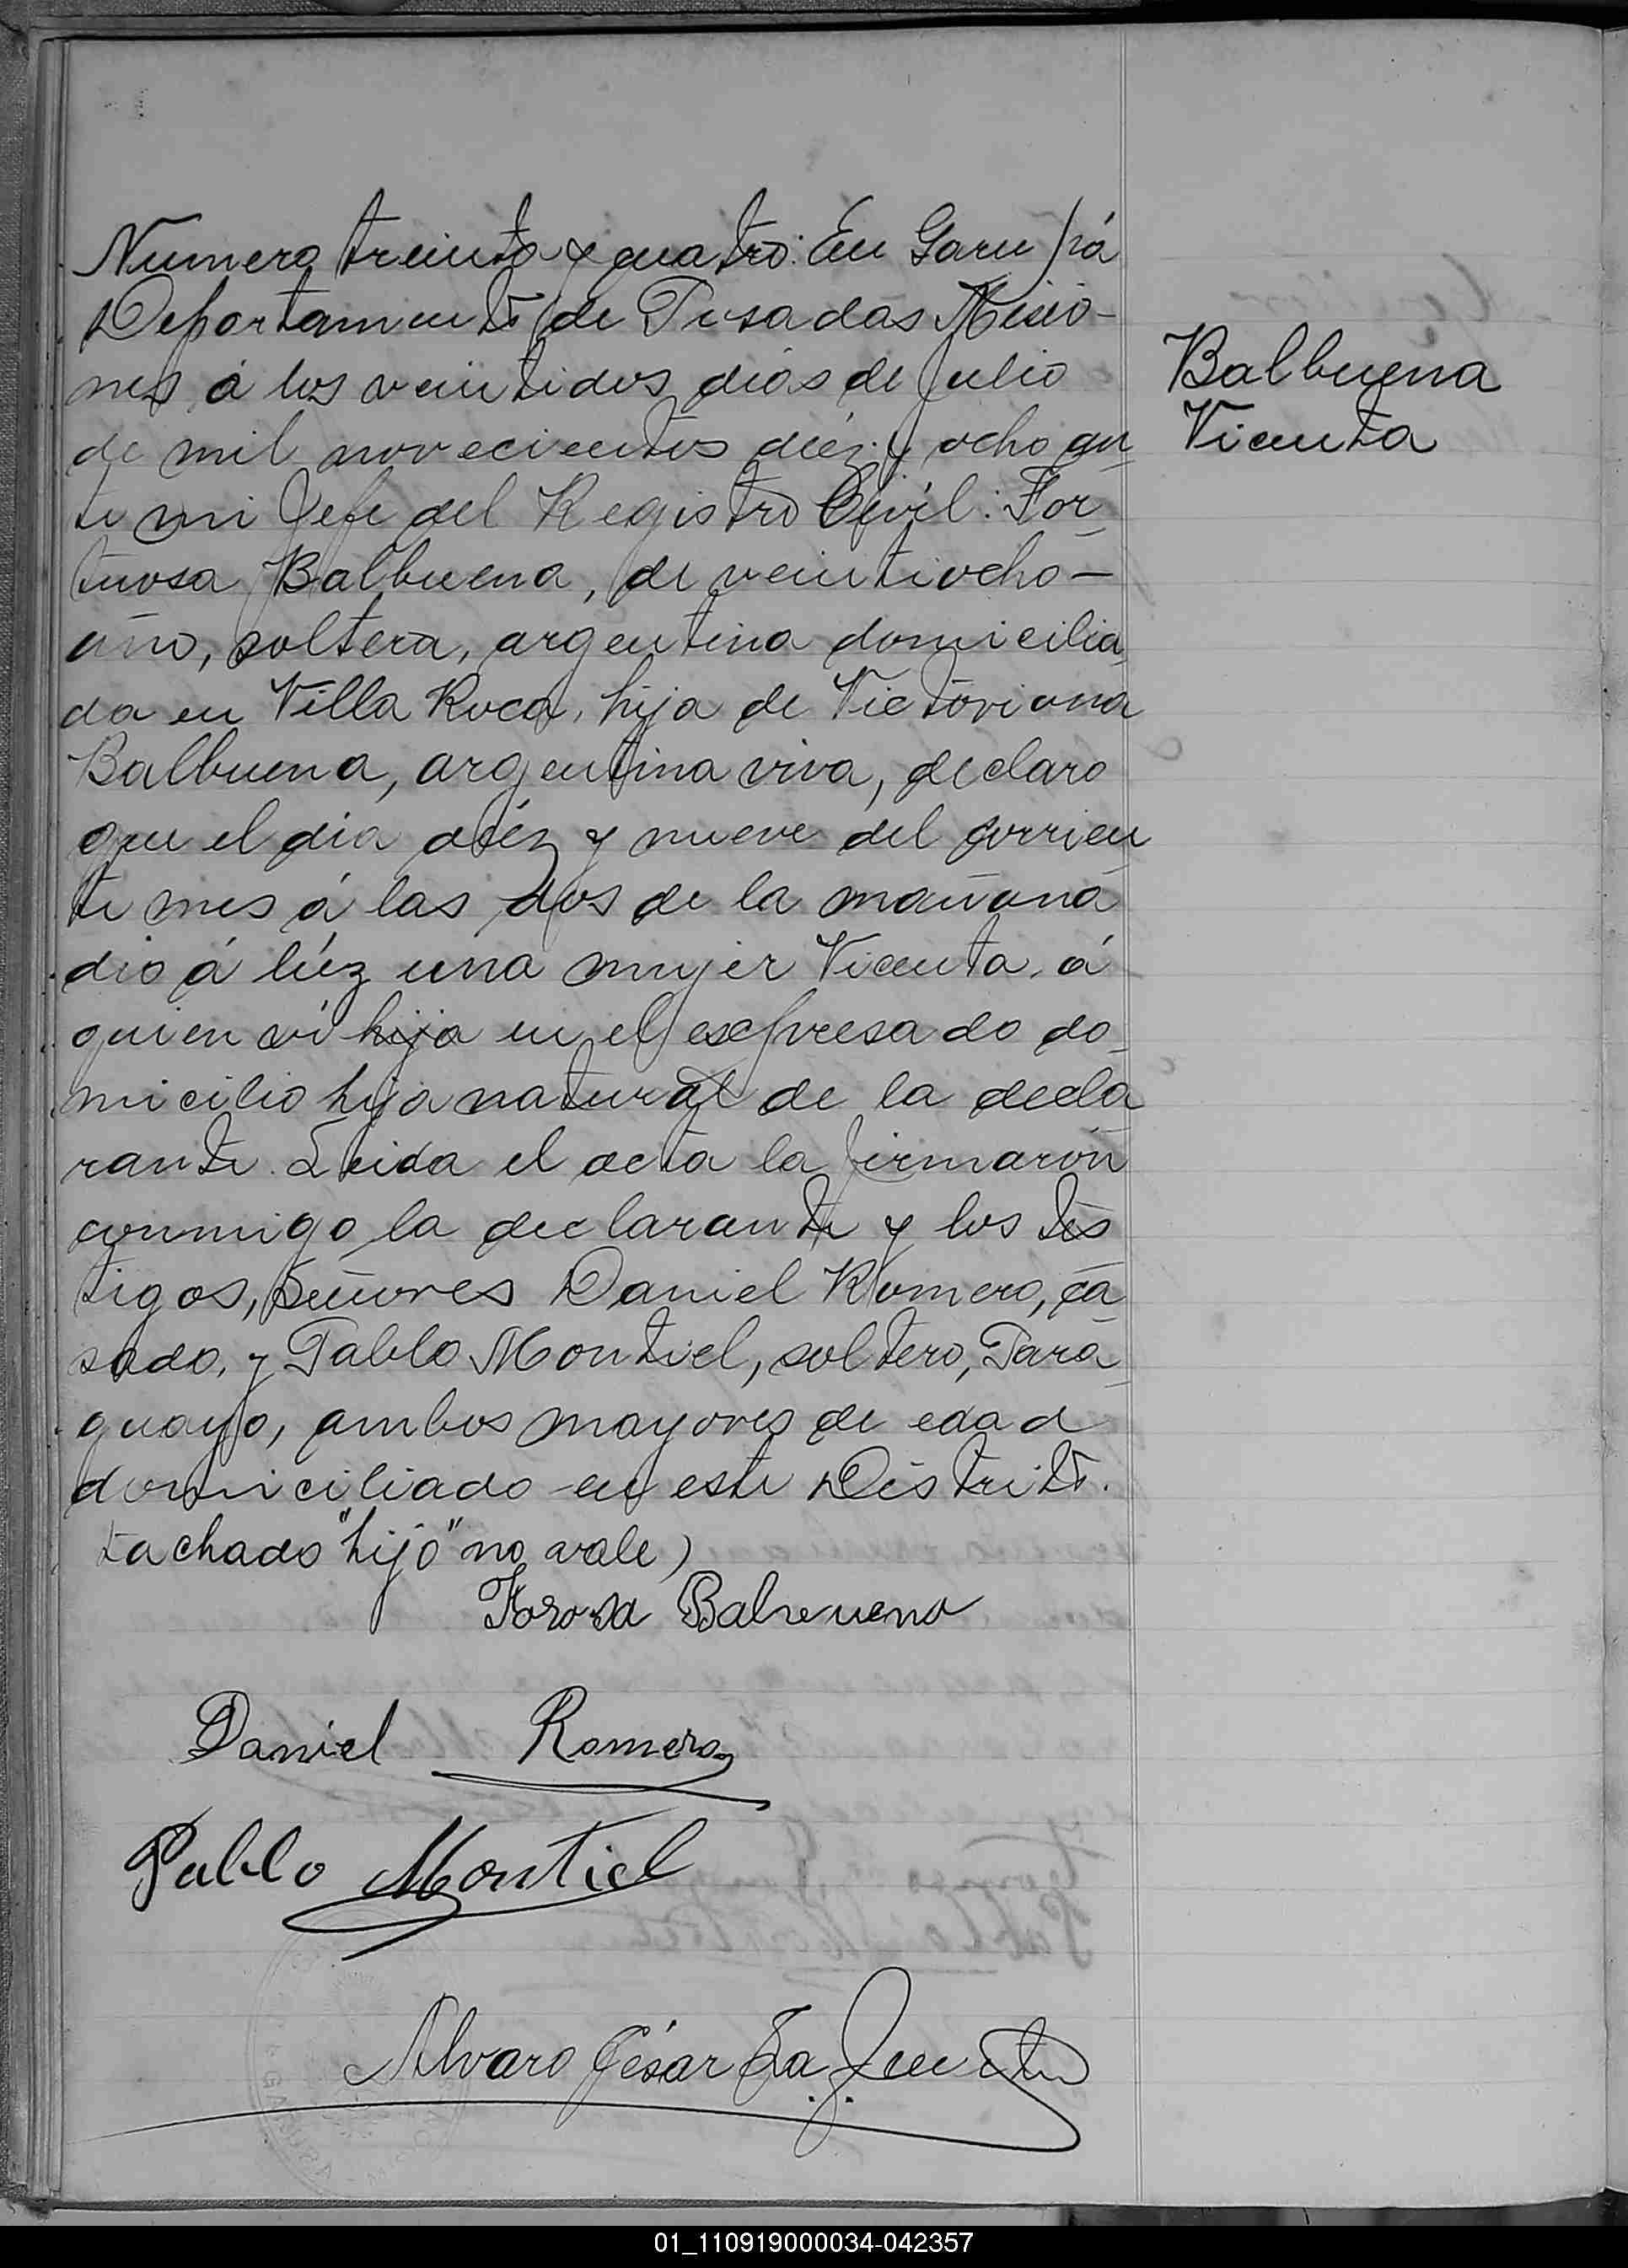 Numero treinta y cuatro: En Garupá
Departamento de Posadas Misio-
nes á los veintidos dias de Julio
de mil novecientos diéz y ocho an_
te mi Jefe del Registro Civil: For_
tuosa Balbuena, de veintiocho —
año, soltera, argentina domicilia_
da en Villa Roca, hija de Victoriana
Balbuena, argentina viva, declaro
que el dia diéz y nueve del corrien_
te mes á las dos de la mañana
dio á lúz una mujer Vicenta, á
quien ví hija en el expresado do_
micilio hija natural de la decla_
rante. Leida el acta la firmaron
conmigo la declarante y los tes_
tigos, señores Daniel Romero, ca_
sado, y Pablo Montiel, soltero, Para_
guayo, ambos mayores de edad
domiciliado en este Distrito.
tachado "hijo" no vale)
Balbuena
Vicenta
Daniel Romero
Pablo Montiel
Alvaro César La
01_110919000034-042357